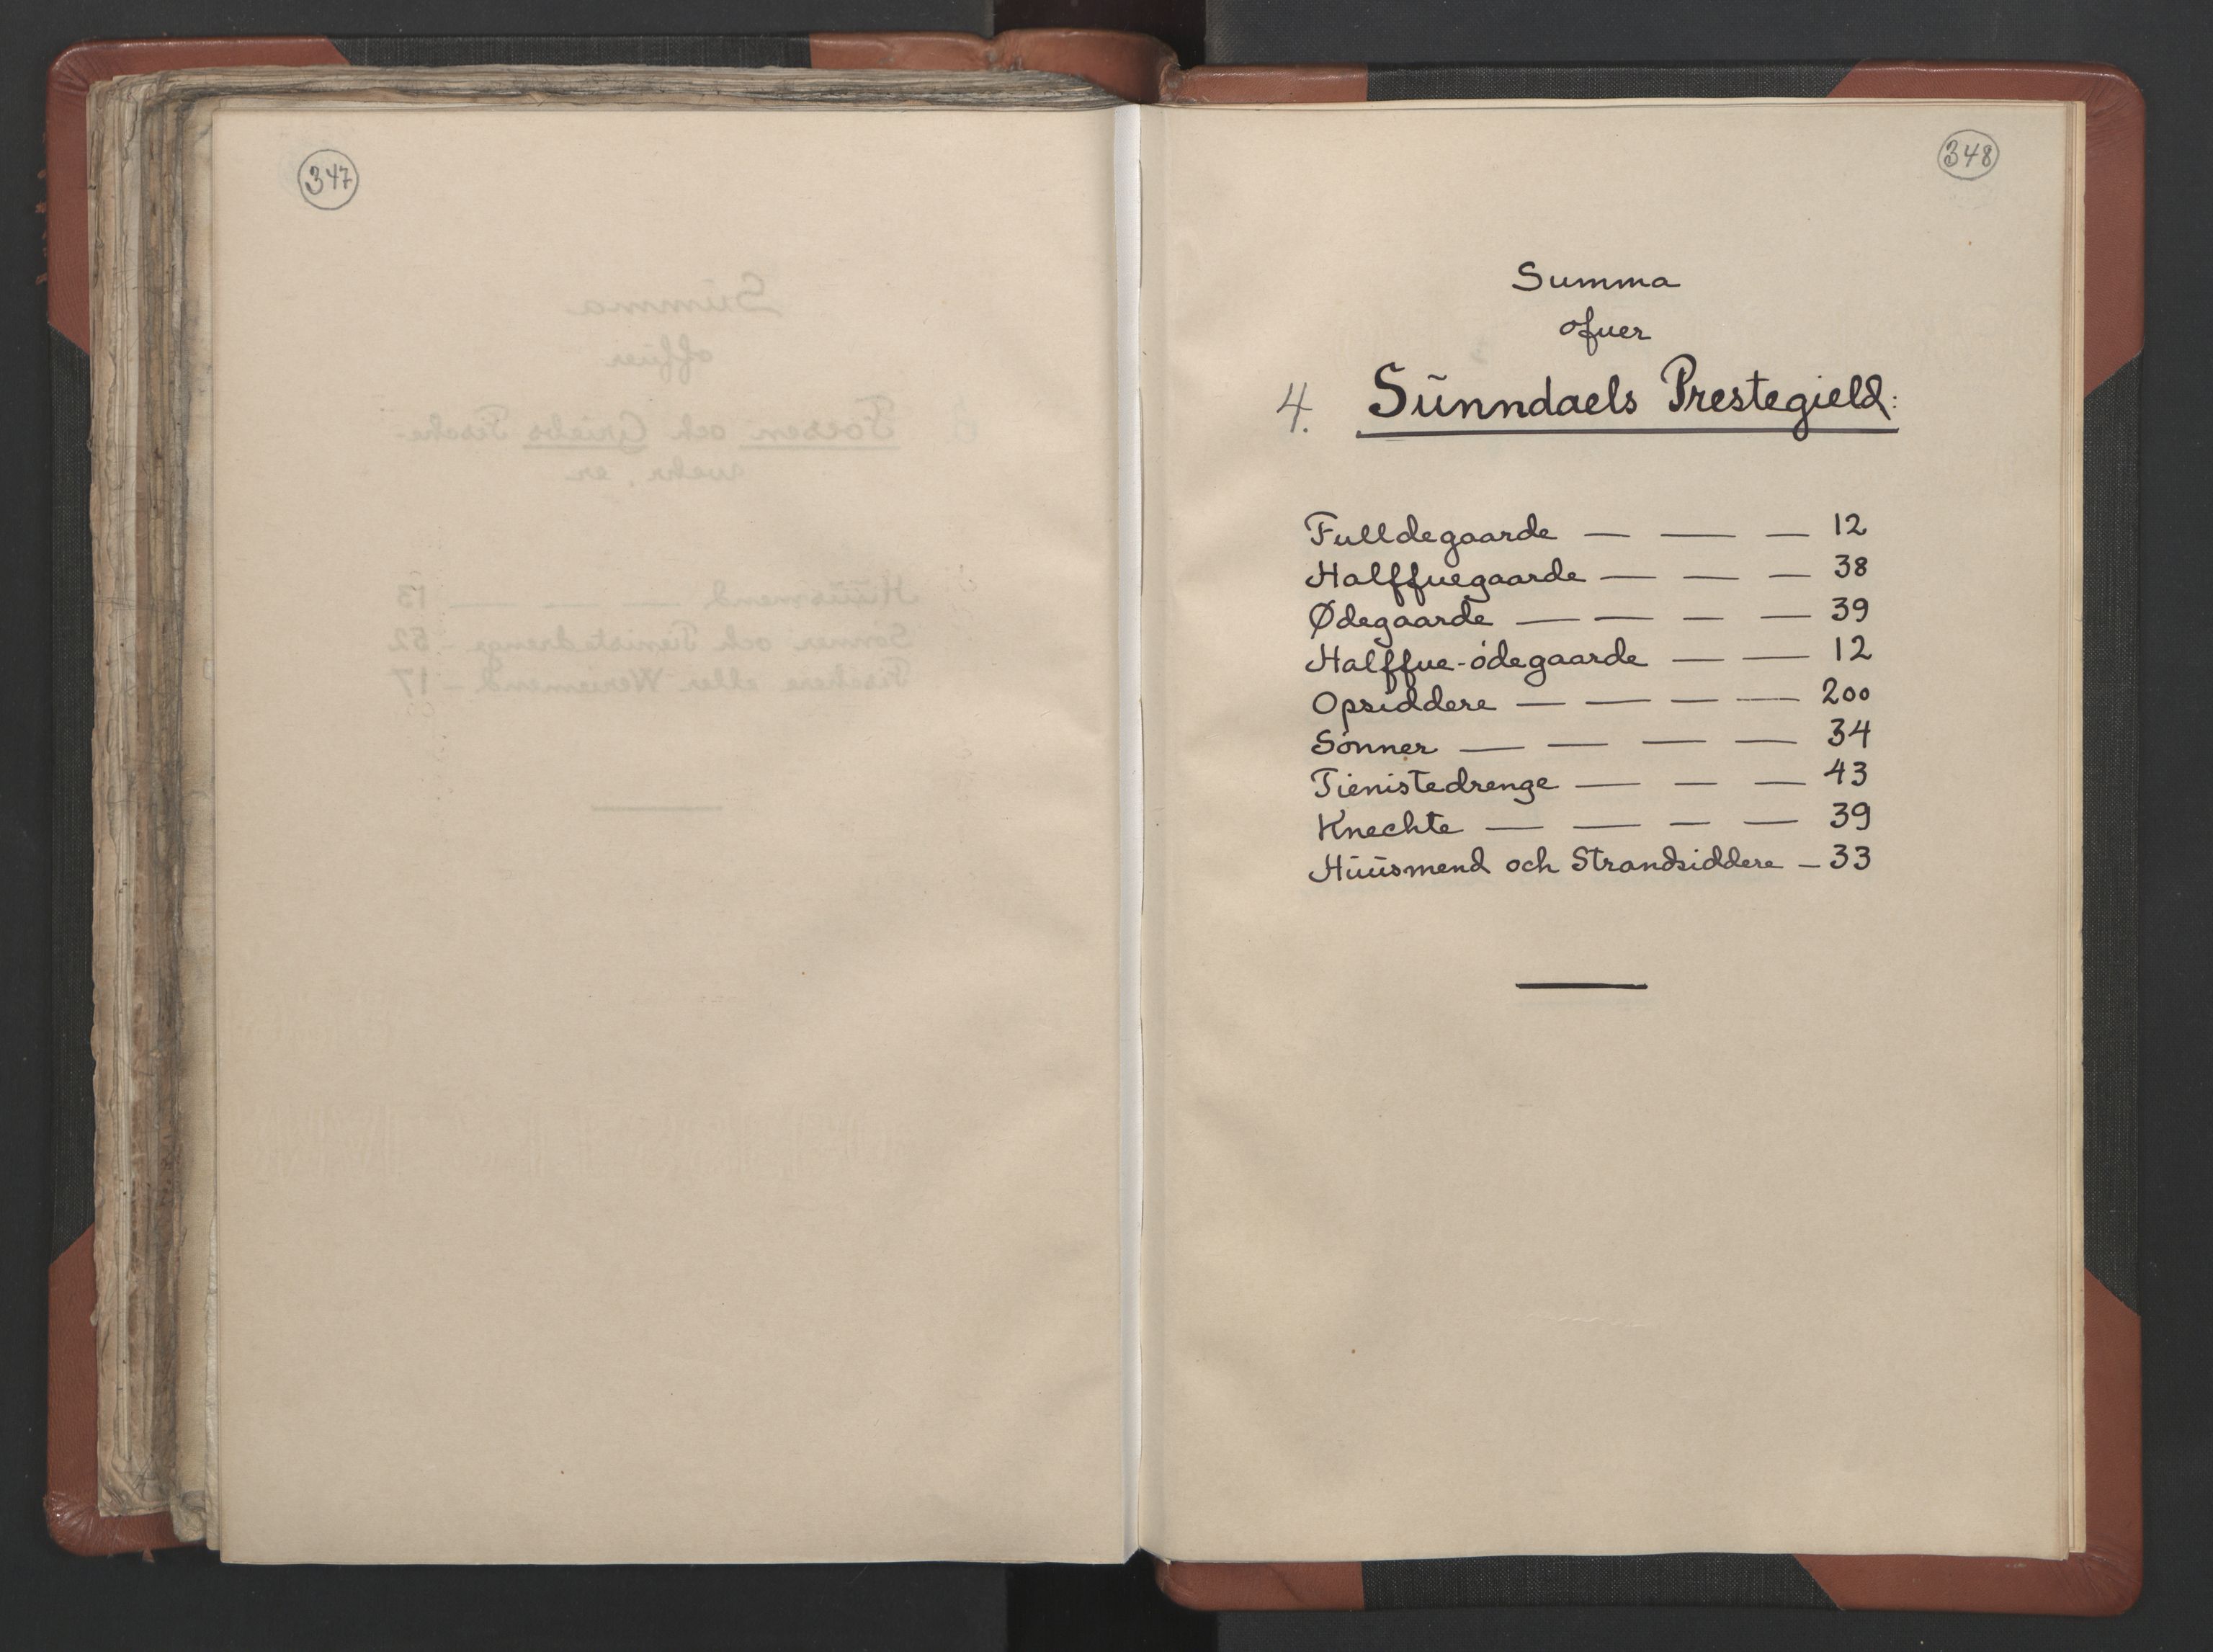 347
348
Summa
ofuer
4. Sŭnndaels Prestegield:
Fulldegaarde — — — 12
Halffuegaarde — — — 38
Ødegaarde — — — — 39
Halffue-ödegaarde — — 12
Opsiddere — — — — 200
Sönner — — — — 34
Tienistedrenge — — — 43
Knechte — — — — 39
Hŭŭsmend och Strandsiddere — 33